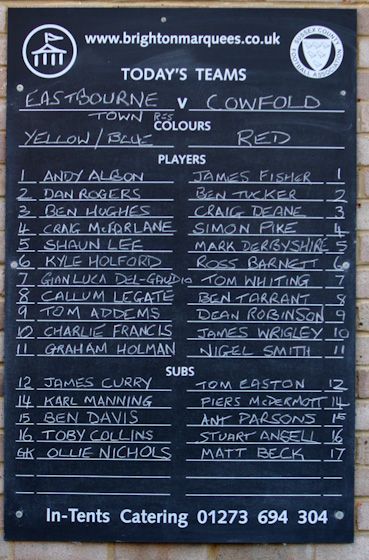 www.brightonmarquees.co.uk
SUSSEX COUNTY FOOTBALL ASSOCIATION
TODAY'S TEAMS
EASTBOURNE V COWFOLD
TOWN RES
COLOURS
YELLOW/BLUE RED
PLAYERS
1 ANDY ALBON JAMES FISHER 1
2 DAN ROGERS BEN TUCKER 2
3 BEN HUGHES CRAIG DEANE 3
4 CRAIG McFARLANE SIMON PIKE 4
5 SHAUN LEE MARK DERBYSHIRE 5
6 KYLE HOLFORD ROSS BARNETT 6
7 GIANLUCA DEL-GAUDIO TOM WHITING 7
8 CALLUM LEGATE BEN TARRANT 8
9 TOM ADDEMS DEAN ROBINSON 9
10 CHARLIE FRANCIS JAMES WRIGLEY 10
11 GRAHAM HOLMAN NIGEL SMITH 11
SUBS
12 JAMES CURRY TOM EASTON 12
14 KARL MANNING PIERS McDERMOTT 14
15 BEN DAVIS ANT PARSONS 15
16 TOBY COLLINS STUART ANSELL 16
GK OLLIE NICHOLS MATT BECK 17
In-Tents Catering 01273 694 304